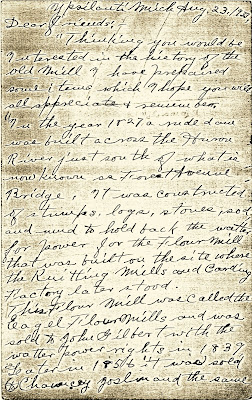 Ypsilanti Mich Aug. 23,
Dear Friends;
"Thinking you would be
Interested in the history of the
old Mill I have prepaired
some items which I hope you will
all appreciate & remember,
"In the year 1827 a rude dam
was built across the Huron
River just south of what is
now known as Forest Avenue
Bridge. It was constructed
of stumps, logs, stones, sod
and mud to hold back the watter
for power for the Flour Mill
that was built on the site where
the Knitting Mills and Carding
Factory later stood.
This Flour Mill was called the
Eagel Flour Mills and was
sold to John Gilbert with the
watter power rights in 1839
Later in 1856 it was sold
to Chauncey Joslin and the same